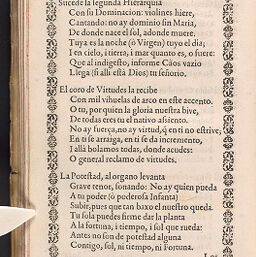 Sucede la segunda Hierarquia
Con su Dominacion: violines hiere,
Cantando: no ay dominio sin Maria,
De donde nace el sol, adonde muere.
Tuya es la noche (ò Virgen) tuyo el dia;
Ten cielo, i tierra, i mar quanto es, o fuere:
Que al indigesto, informe Càos vazio
Llega (si allì està Dios) tu señorio.
El coro de Virtudes la recibe
Con mil vihuelas de arco en este accento.
O tu, por quien la gloria nuestra bive,
De todas eres tu el nativo assiento.
No ay fuerça, no ay virtud, q̃ en ti no estrive;
En ti se arraiga, en ti se da incremento,
I allà bolamos todas, donde acudes:
O general reclamo de virtudes.
La Potestad, al organo levanta
Grave tenor, sonando: No ay quien pueda
A tu poder (ò poderosa Infanta)
Subir, pues que tan baxo el nuestro queda.
Tu sola puedes firme dar la planta
A la fortuna, i tiempo, i sol que rueda:
Antes no son de potestad alguna
Contigo, sol, ni tiempo, ni Fortuna.